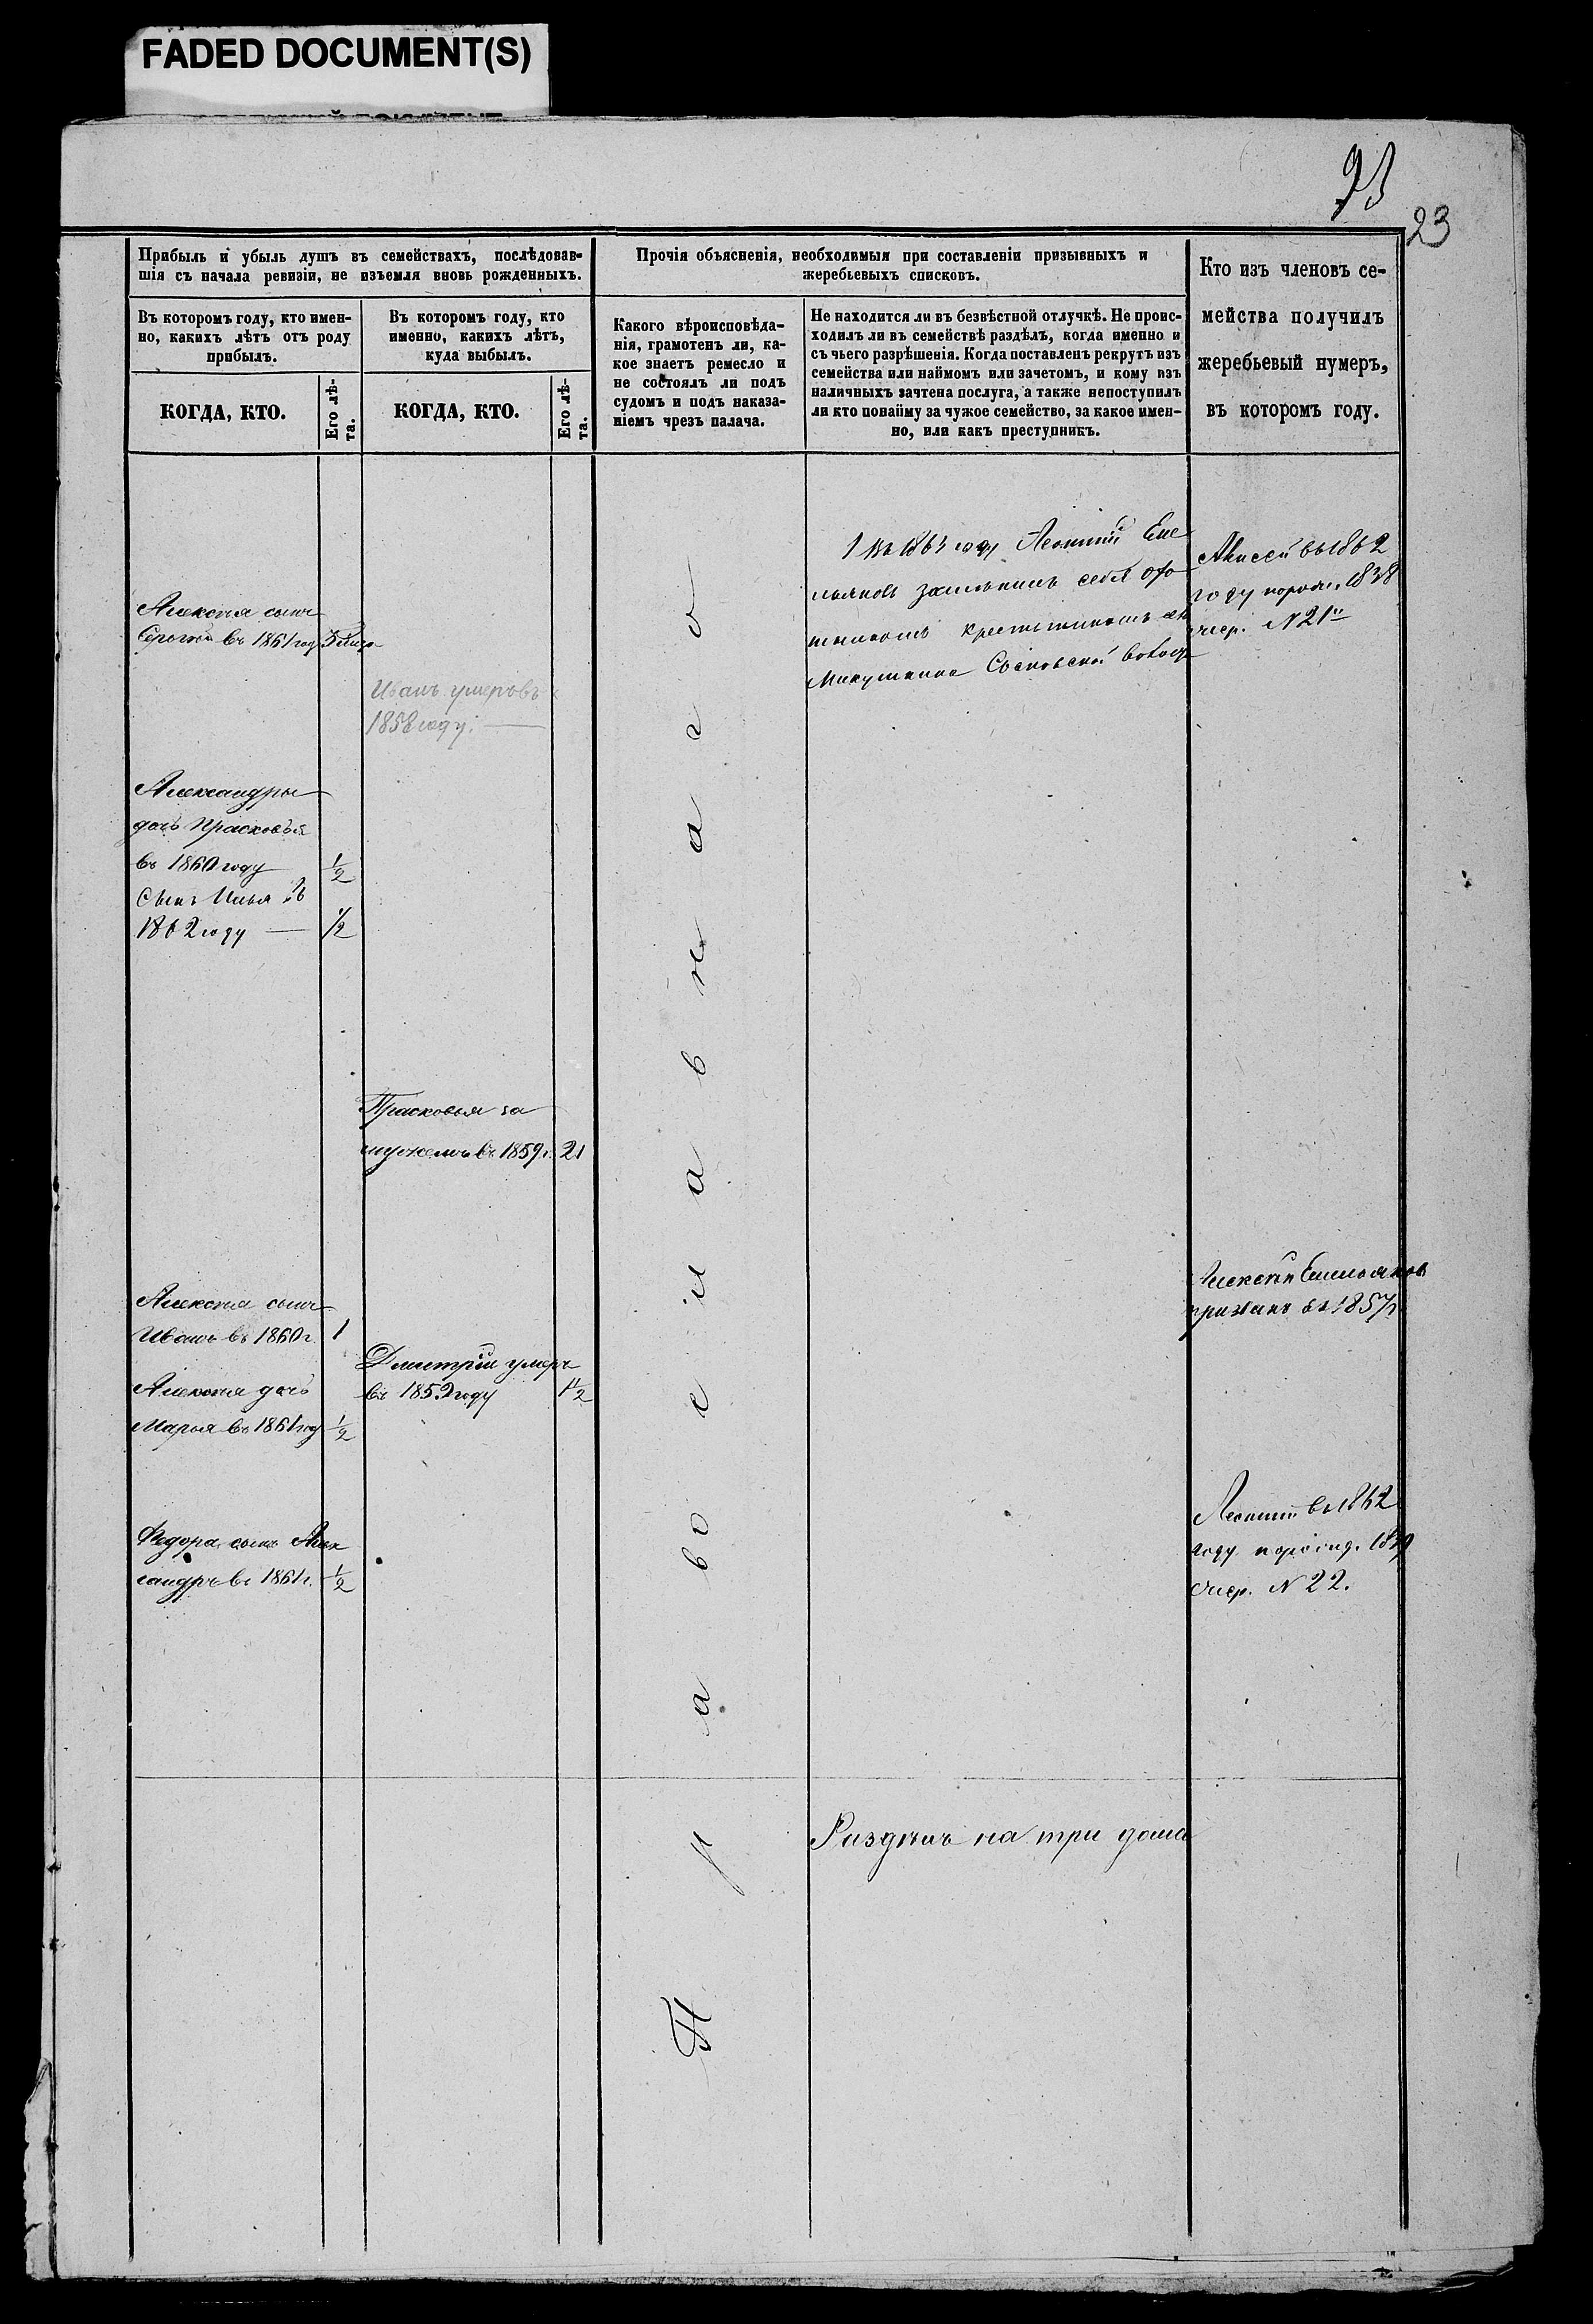 FADED DOCUMENT(S)
23
23
Прибыль и убыль душъ въ семействахъ, послѣдовав-
шія съ начала ревизіи, не изъемля вновь рожденныхъ.
Прочія объясненія, необходимыя при составленіи призывныхъ и
жеребьевыхъ списковъ.
Кто изъ членовъ се-
мейства получилъ
жеребьевый нумеръ,
въ которомъ году.
Въ которомъ году, кто имен-
но, какихъ лѣтъ отъ роду
прибылъ.
Въ которомъ году, кто
именно, какихъ лѣтъ,
куда выбылъ.
Какого вѣроисповѣда-
нія, грамотенъ ли, ка-
кое знаетъ ремесло и
не состоялъ ли подъ
судомъ и подъ наказа-
ніемъ чрезъ палача.
Не находится ли въ безвѣстной отлучкѣ. Не проис-
ходилъ ли въ семействѣ раздѣлъ, когда именно и
съ чьего разрѣшенія. Когда поставленъ рекрутъ изъ
семейства или наймомъ или зачетомъ, и кому изъ
наличныхъ зачтена послуга, а также непоступилъ
ли кто понайму за чужое семейство, за какое имен-
но, или какъ преступникъ.
КОГДА, КТО.
Его лѣ-
та.
КОГДА, КТО.
Его лѣ-
та.
Алексѣя сынъ
Сергѣй въ 1861 год
Иванъ умеръ въ
1858 году.
Александры
дочь Прасковья
въ 1860 году 1/2
Сынъ Илья въ
1862 году 1/2
Прасковья за
мужемъ въ 1859 г. 21
Алексѣя сынъ
Иванъ въ 1860 г. 1
Алексѣя дочь
Марья въ 1861 год 1/2
Дмитрій умеръ
въ 1859 году 1 1/2
Федора сынъ Алек
сандръ въ 1861 г. 1/2
Православнаго
1 Въ 1863 году Леонтій Еме
льяновъ замѣнилъ себя охо
тникомъ крестьяниномъ
Сосновской волос
Раздѣлъ на три дома
въ 1862
году 1838
жер. N 21
Алексѣй Емельяновъ
призванъ въ 1857 г.
Леонтій въ 1862
году
жер. N 22.